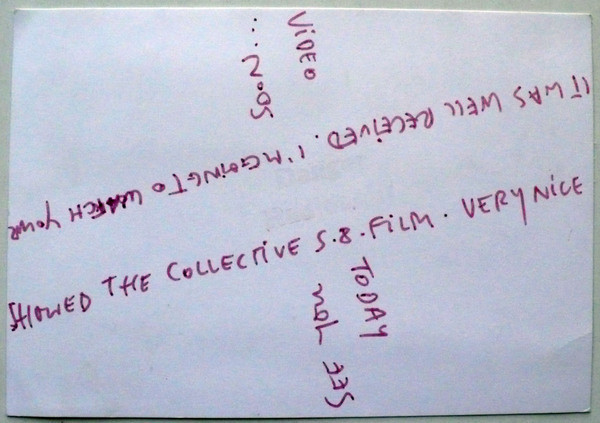 TODAY
SHOWED THE COLLECTIVE S.8.FILM. VERY NICE
IT WAS WELL RECEIVED. I'M GOING TO WATCH YOUR
VIDEO
SOON...
SEE